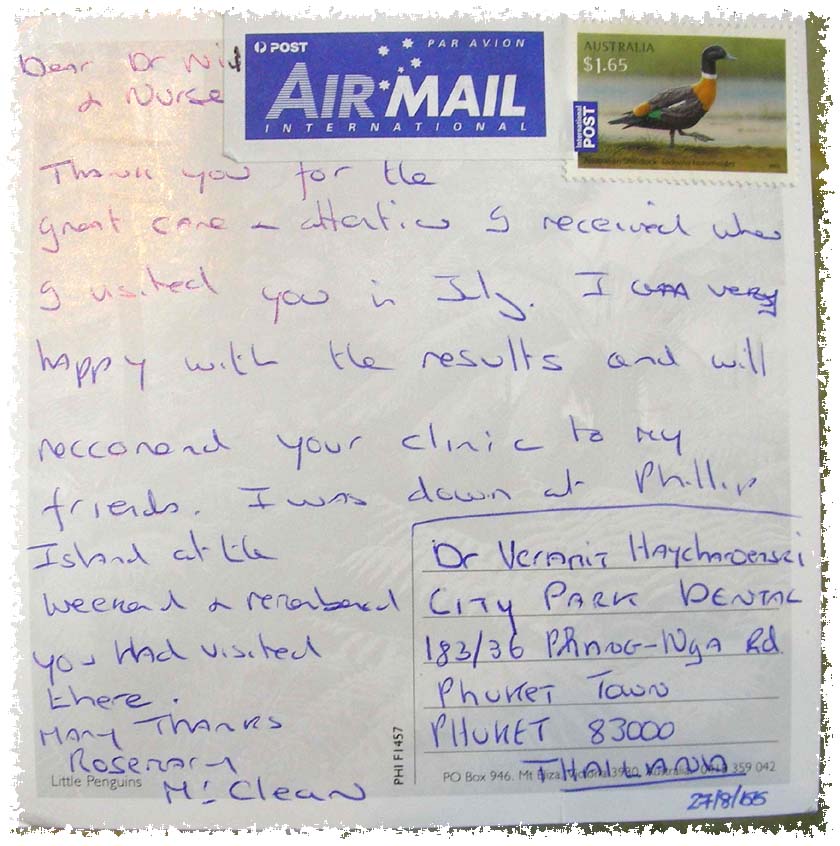 Dear Dr Nid
& Nurse
POST PAR AVION
AIR MAIL
INTERNATIONAL
AUSTRALIA
$1.65
International
POST
Thank you for the
great care & attention I received when
I visited you in July. I was very
happy with the results and will
reccomend your clinic to my
friends. I was down at Phillip
Island at the
weekend & remembered
you Had visited
there.
MANY THANKS
Rosemary
McClean
Little Penguins
PHI F1457
Dr Veranit Haycharoenski
CITY PARK DENTAL
183/36 PHANG-Nga Rd
Phuket Town
PHUKET 83000
THAILAND
PO Box 946. Mt Eliza, Victoria 3930, Australia 359 042